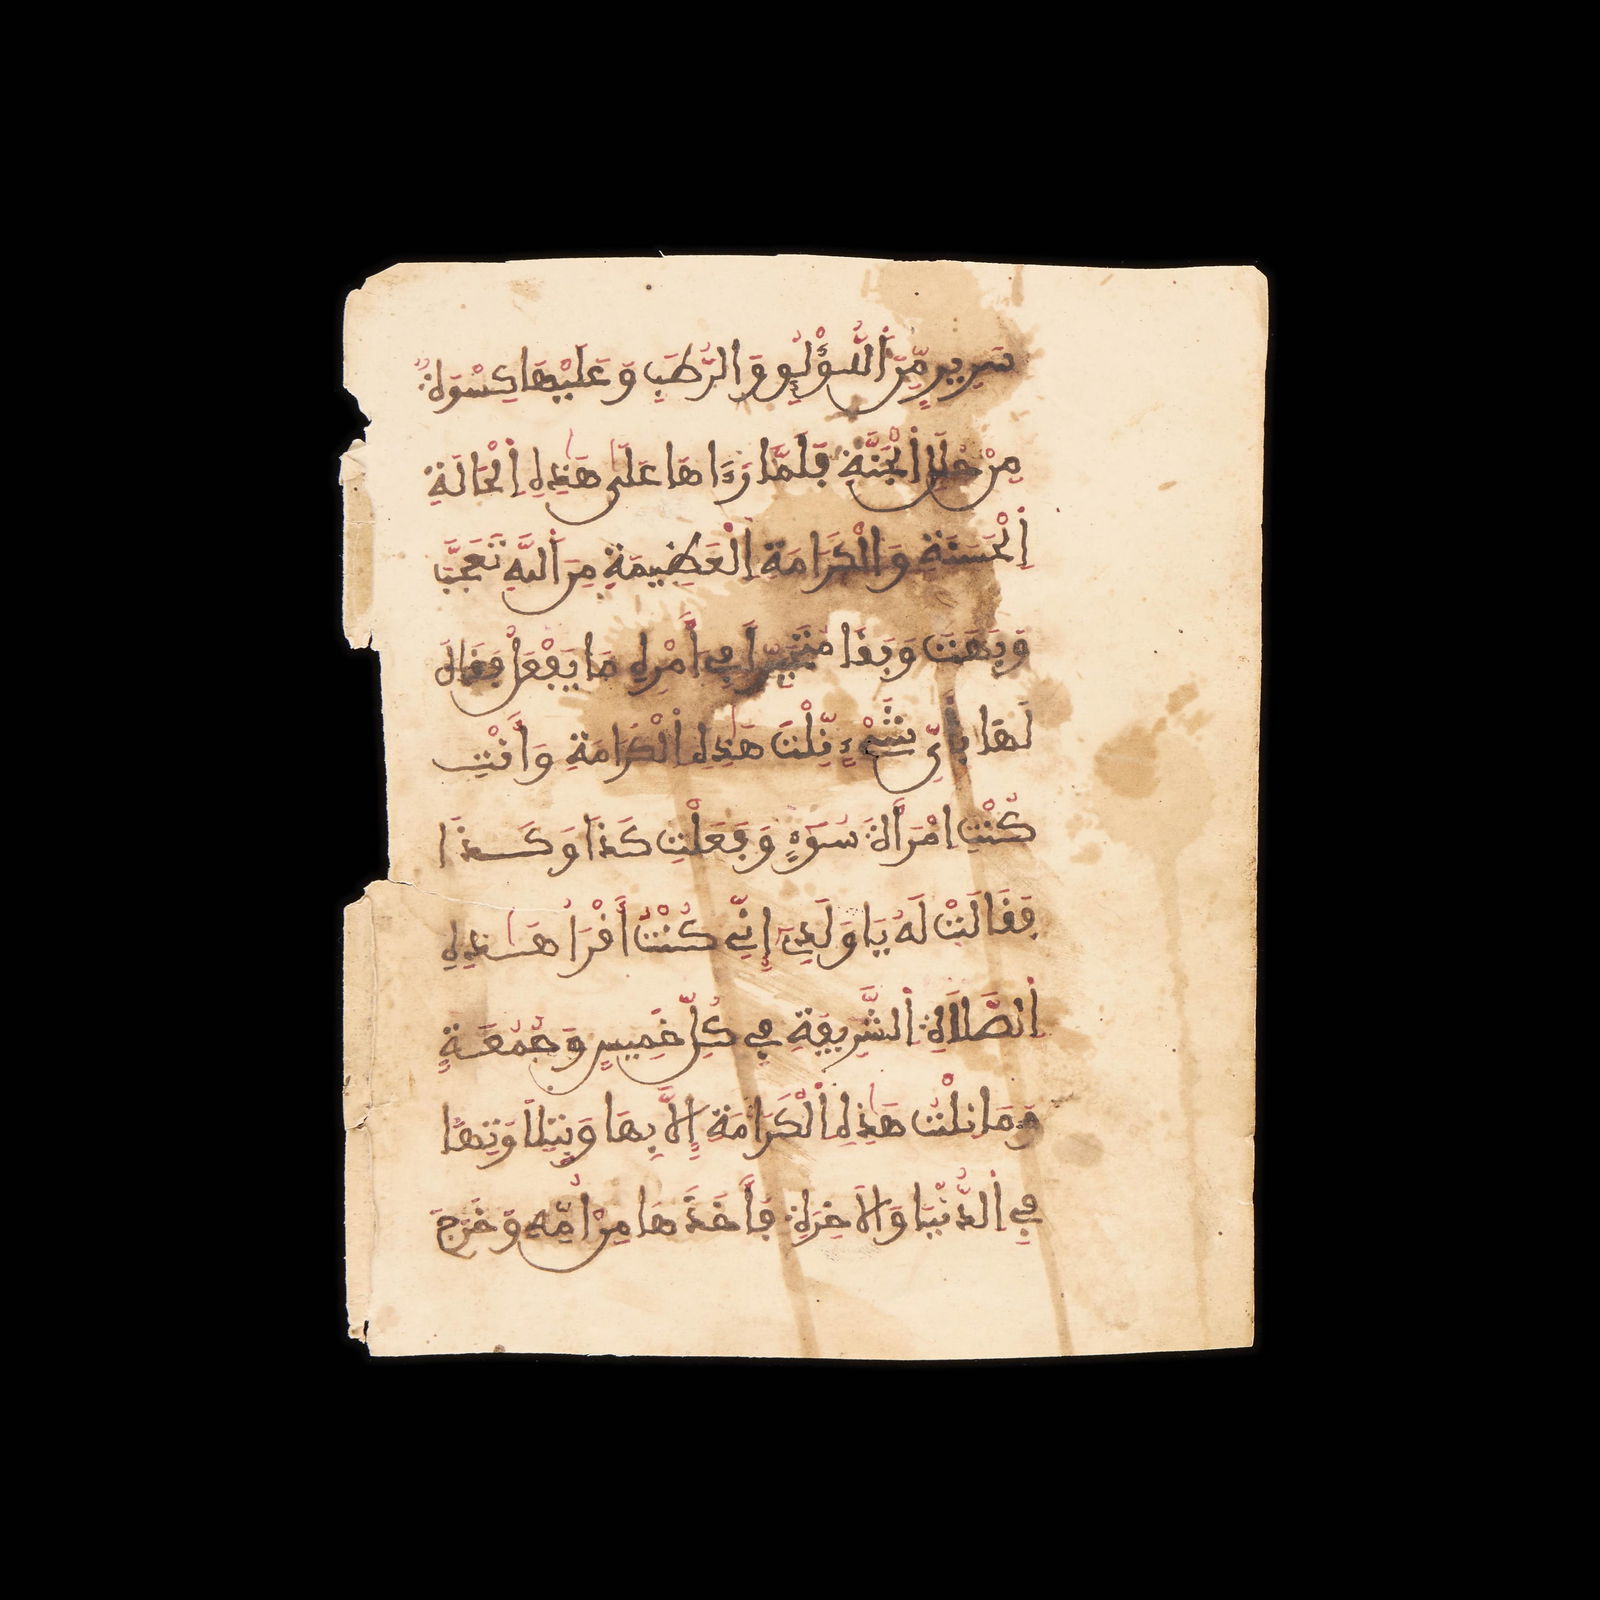 سَرِيرٍ مِّنَ اَللُّؤْلُؤِ وَالرُّطَبِ وَعَلَيْهَا كِسْوَةٌ
مِنْ حُلَلِ اِلْجَنَّةِ فَلَمَّا رَءَاهَا عَلَى هَٰذِهِ اِلْحَالَةِ
اِلْحَسَنَةِ وَالْكَرَامَةِ اِلْعَظِيمَةِ مِنَ اَللَّهِ تَعَجَّبَ
وَبَهَتَ وَبَقَا مُتَحَيِّراً فِي أَمْرِهِ مَا يَفْعَلُ فَقَالَ
لَهَا بِأَيِّ شَيْءٍ نِّلْتَ هَٰذِهِ اِلْكَرَامَةِ وَأَنْتِ
كُنْتِ امْرَأَةَ سَوْءٍ وَفَعَلْتِ كَذَا وَكَذَا
فَقَالَتْ لَهُ يَا وَلَدِي إِنِّي كُنْتُ أَقْرَأُ هَٰذِهِ
اِلصَّلَاةِ اَلشَّرِيفَةِ فِي كُلِّ خَمِيسٍ وَجُمُعَةٍ
وَمَا نِلْتُ هَٰذِهِ اِلْكَرَامَةَ إِلَّا بِهَا
فِي اِلدُّنْيَا وَالاَخِرَةِ فَأَخَذَهَا مِنْ أُمِّهِ وَخَرَجَ